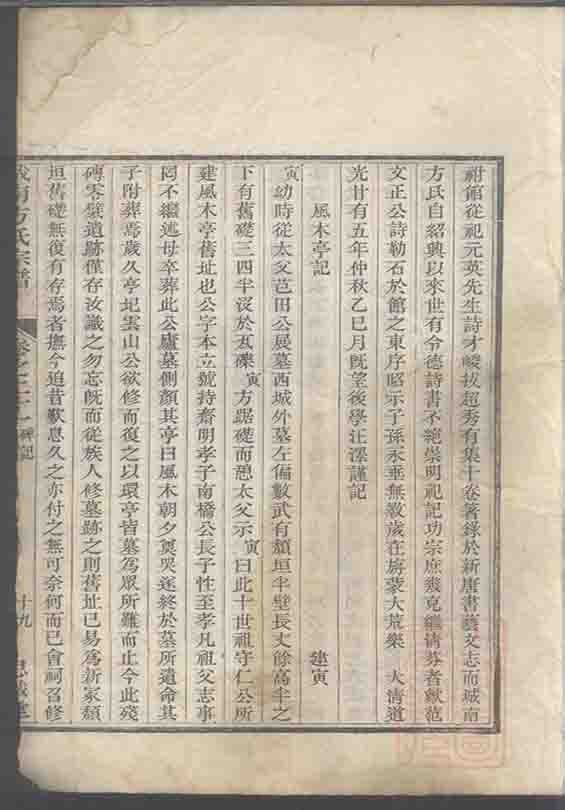 祔館從祀元英先生詩才峻拔超秀有集十卷著錄於新唐書藝文志而城南
方氏自紹興以來世有令德詩書不絕崇明祀記功宗庶幾克繼清芬者歟范
文正公詩勒石於館之東序昭示子孫永垂無斁歲在旃蒙大荒樂　大清道
光廿有五年仲秋乙巳月既望後學汪溁謹記
風木亭記　　建寅
寅幼時從太父芭田公展墓西城外墓左偏數武有頹垣半壁長丈餘高半之
下有舊礎三四半沒於瓦礫寅方踞礎而憩太父示寅曰此十世祖守仁公所
建風木亭舊址也公字本立號持齋明孝子南橋公長子性至孝凡祖父志事
罔不繼述母卒葬此公廬墓側顏其亭曰風木朝夕奠哭遂終於墓所遺命其
子附葬焉歲久亭圮雲山公欲修而復之以環亭皆墓為眾所難而止今此殘
磚零甓遺跡僅存汝識之勿忘既而從族人修墓跡之則舊址已易為新冢頹
垣舊礎無復有存焉者撫今追昔歎息久之亦付之無可奈何而已會祠召修
城南方氏宗譜　卷之二十一　碑記　十九